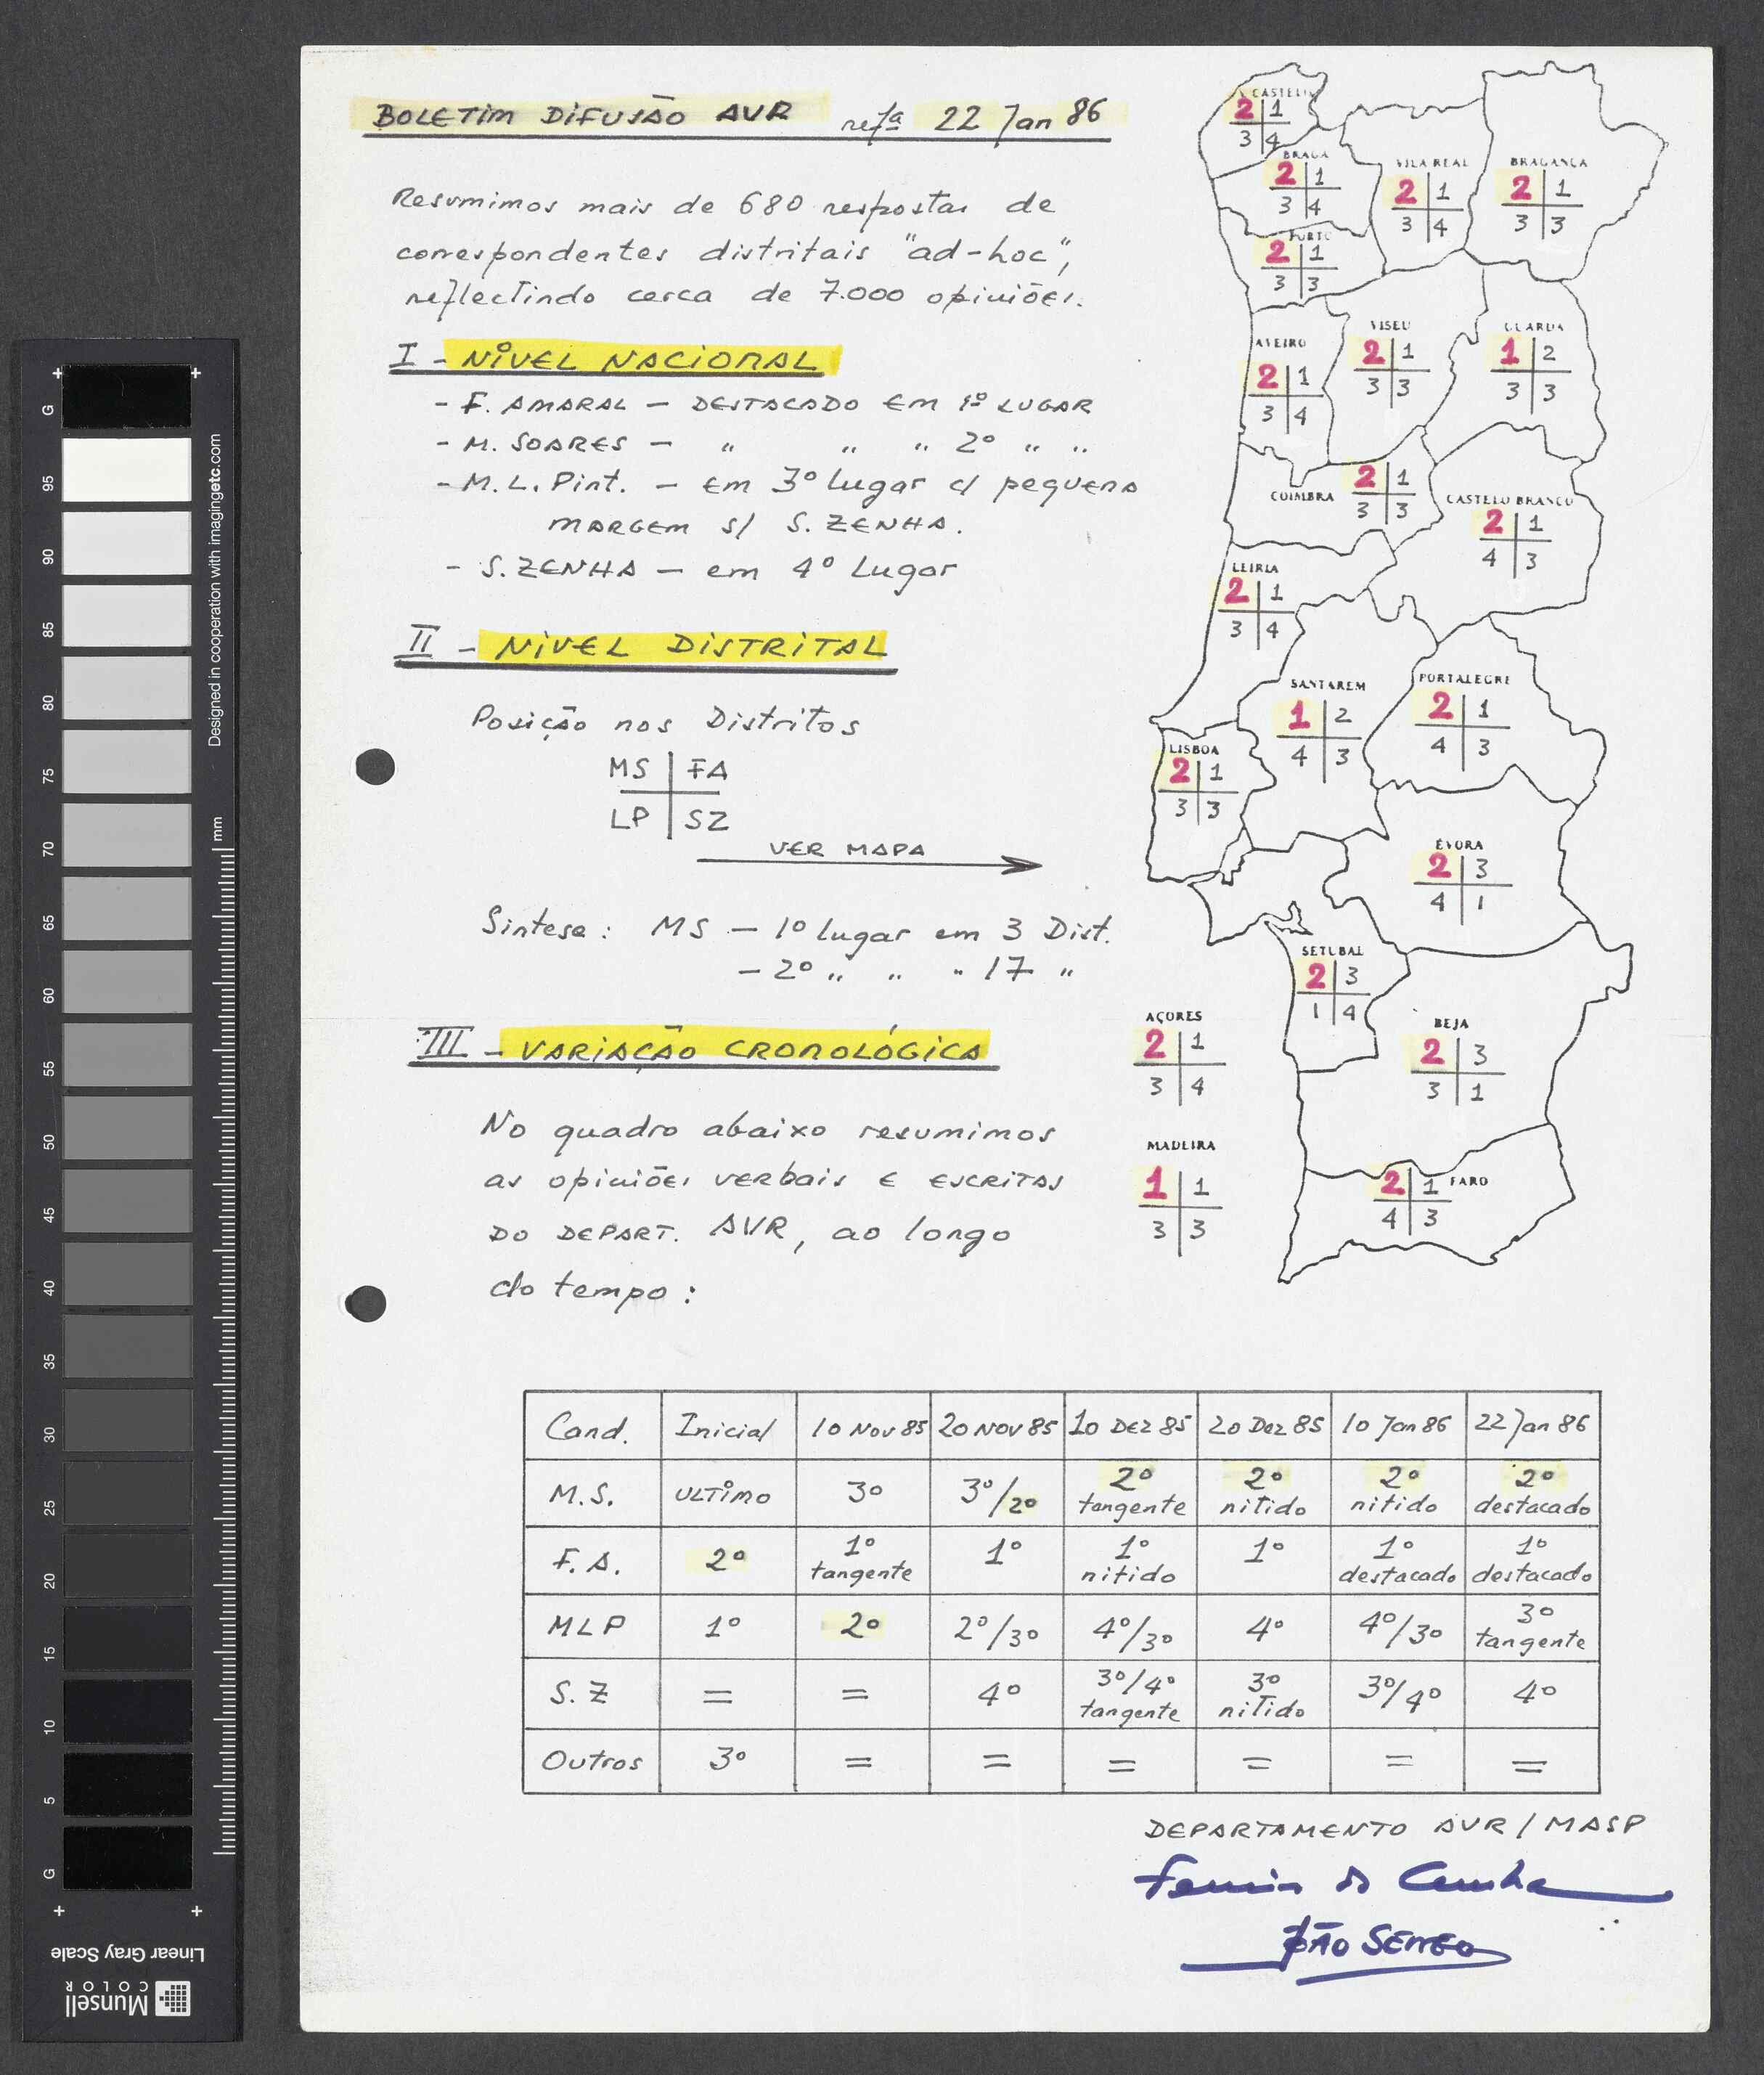 BOLETIM DIFUSÃO AVR refª 22 Jan 86
Resumimos mais de 680 respostas de
correspondentes distritais "ad-hoc",
reflectindo cerca de 7.000 opiniões.
I - NÍVEL NACIONAL
- F. AMARAL - DESTACADO EM 1º LUGAR
- M. SOARES - " " " 2º " "
- M.L. Pint. - em 3º lugar c/ pequena
MARGEM S/ S. ZENHA.
- S. ZENHA - em 4º Lugar
II - NIVEL DISTRITAL
Posição nos Distritos
MS FA
LP SZ
VER MAPA
Sintese: MS - 1º lugar em 3 Dist.
- 2º " " " 17 "
III - VARIAÇÃO CRONOLÓGICA
No quadro abaixo resumimos
as opiniões verbais e escritas
do DEPART. AVR, ao longo
do tempo:
V. CASTELO
2 1
3 4
BRAGA
2 1
3 4
VILA REAL
2 1
3 4
BRAGANÇA
2 1
3 3
PORTO
2 1
3 3
AVEIRO
2 1
3 4
VISEU
2 1
3 3
GUARDA
1 2
3 3
COIMBRA
2 1
3 3
CASTELO BRANCO
2 1
4 3
LEIRIA
2 1
3 4
SANTAREM
1 2
4 3
PORTALEGRE
2 1
4 3
LISBOA
2 1
3 3
ÉVORA
2 3
4 1
SETUBAL
2 3
1 4
BEJA
2 3
3 1
AÇORES
2 1
3 4
MADEIRA
1 1
3 3
FARO
2 1
4 3
Cand. Inicial 10 Nov 85 20 NOV 85 10 DEZ 85 20 Dez 85 10 Jan 86 22 Jan 86
M.S. ULTIMO 3º 3º/2º 2º tangente 2º nitido 2º nitido 2º destacado
F.A. 2º 1º tangente 1º 1º nitido 1º 1º destacado 1º destacado
MLP 1º 2º 2º/3º 4º/3º 4º 4º/3º 3º tangente
S.Z = = 4º 3º/4º tangente 3º nitido 3º/4º 4º
Outros 3º = = = = = =
DEPARTAMENTO AVR / MASP
da Cunha
JOÃO
G 95 90 85 80 75 70 65 60 55 50 45 40 35 30 25 20 15 10 5 G
mm
Designed in cooperation with imagingetc.com
Linear Gray Scale
Munsell
COLOR